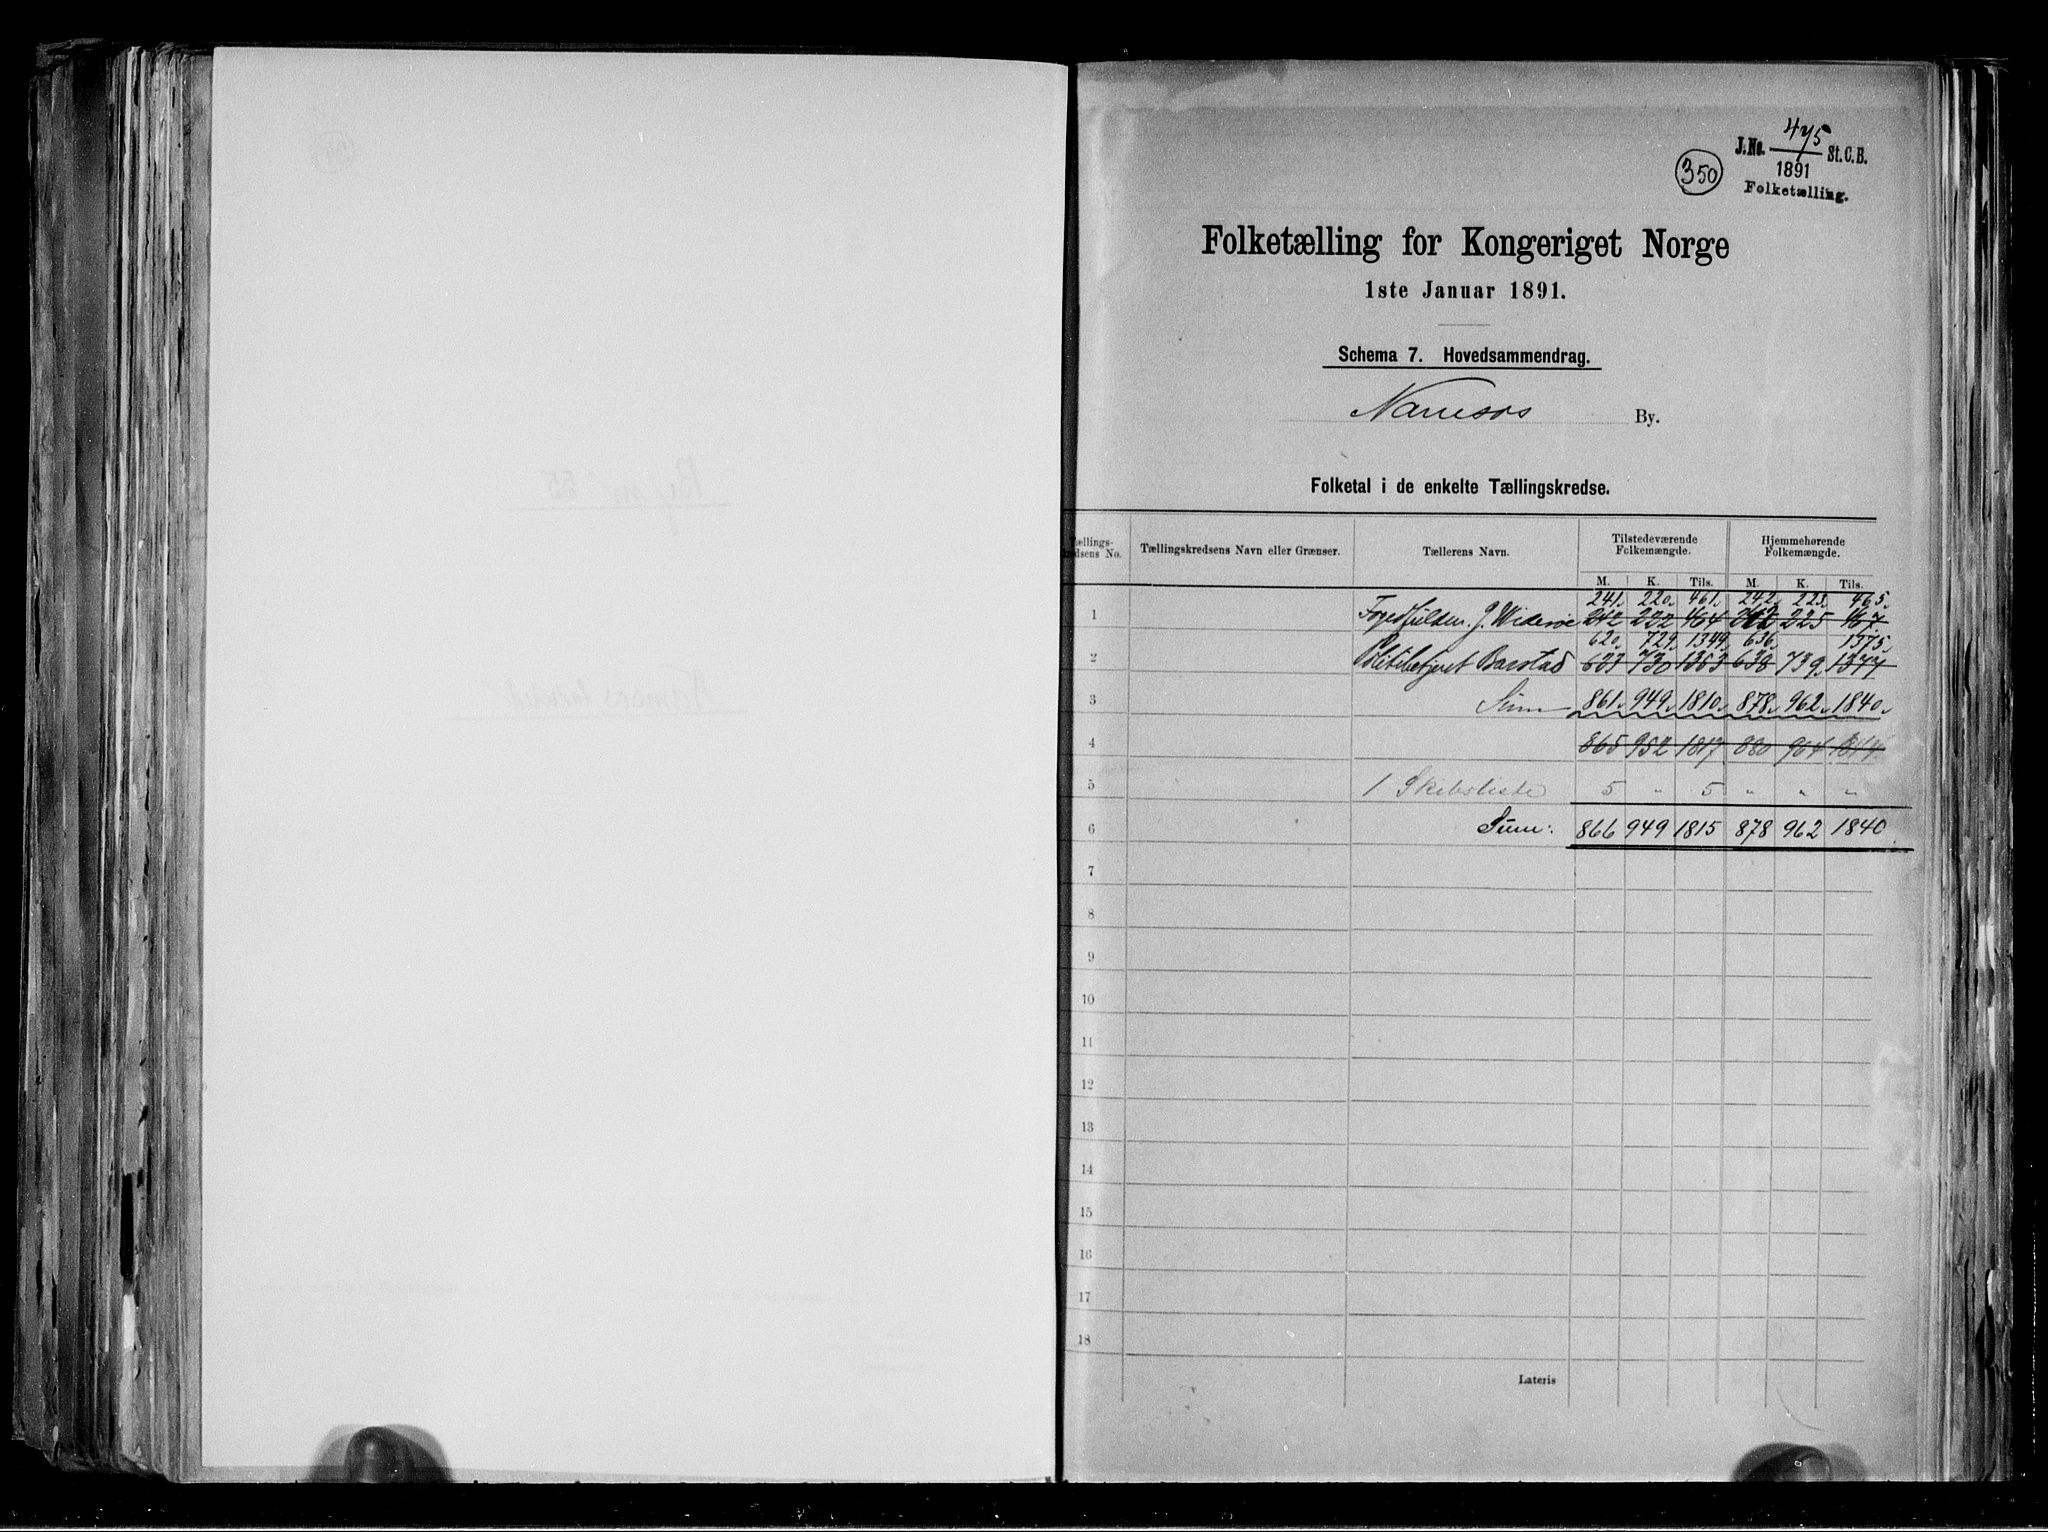 475
J.No. St. C. B.
350 1891
Folketælling.
Folketælling for Kongeriget Norge
1ste Januar 1891.
Schema 7. Hovedsammendrag.
Namsos By.
Folketal i de enkelte Tællingskredse.
Tællingskredsens Navn eller Grænser. Tællerens Navn. Tilstedeværende Folkemængde. Hjemmehørende Folkemængde.
M. K. Tils. M. K. Tils.
241. 220. 461. 242. 223. 465.
1 J. Widerøe 242 222 464 242 225 467
620. 729. 1349. 636. 1375.
2 Politibetjent Barstad 623 730 1353 638 739. 1377
3 Sum 861. 949. 1810. 878. 962. 1840.
4 865 952 1817 880 964 1844
5 1 Skibsliste 5 " 5 " " "
6 Sum: 866 949 1815 878 962 1840.
7
8
9
10
11
12
13
14
15
16
17
18
Lateris